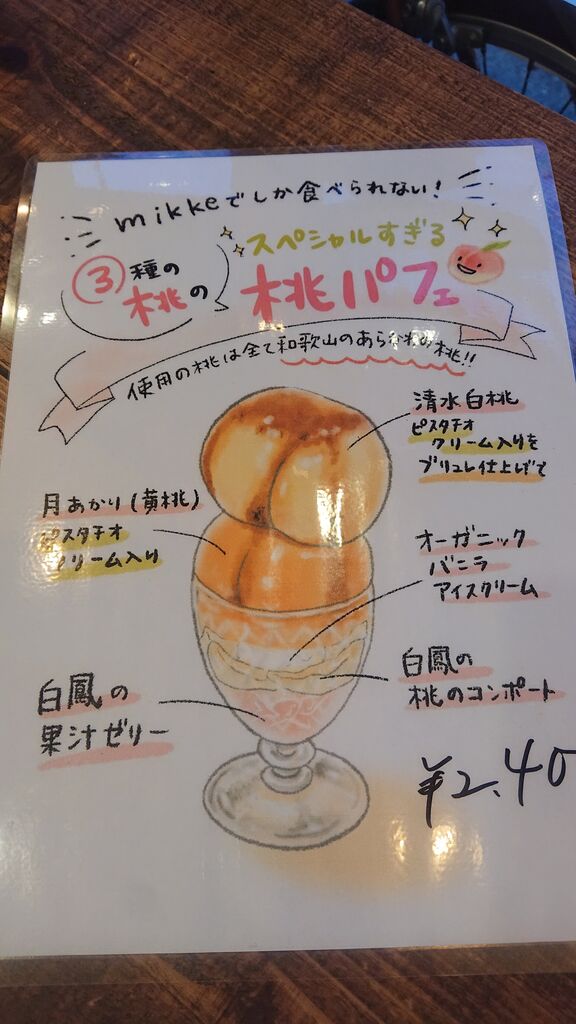 mikkeでしか食べられない!
③種の
桃の
スペシャルすぎる
桃パフェ
使用の桃は全て和歌山のあらかわの桃!!
清水白桃
ピスタチオ
クリーム入りを
ブリュレ仕上げで
月あかり(黄桃)
ピスタチオ
クリーム入り
オーガニック
バニラ
アイスクリーム
白鳳の
桃のコンポート
白鳳の
果汁ゼリー
¥2.40